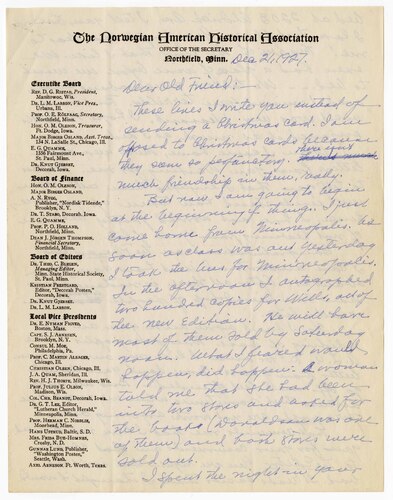 The Norwegian American Historical Association
OFFICE OF THE SECRETARY
Northfield, Minn. Dec 21, 1927.
Executive Board
REV. D. G. RISTAD, President,
Manitowoc, Wis.
DR. L. M. LARSON, Vice Pres.,
Urbana, Ill.
PROF. O. E. RÖLVAAG, Secretary,
Northfield, Minn.
HON. O. M. OLESON, Treasurer,
Ft. Dodge, Iowa.
MAJOR BIRGER OSLAND, Asst. Treas.,
134 N. LaSalle St., Chicago, Ill.
E. G. QUAMME,
1356 Fairmount Ave.,
St. Paul, Minn.
DR. KNUT GJERSET,
Decorah, Iowa.
Board of Finance
HON. O. M. OLESON,
MAJOR BIRGER OSLAND,
A. N. RYGG,
Publisher, "Nordisk Tidende,"
Brooklyn, N. Y.
DR. T. STABO, Decorah, Iowa.
E. G. QUAMME,
PROF. P. O. HOLLAND,
Northfield, Minn.
DEAN J. JÖRGEN THOMPSON,
Financial Secretary,
Northfield, Minn.
Board of Editors
DR. THEO. C. BLEGEN,
Managing Editor,
Minn. State Historical Society,
St. Paul, Minn.
KRISTIAN PRESTGARD,
Editor, "Decorah Posten,"
Decorah, Iowa.
DR. KNUT GJERSET,
DR. L. M. LARSON,
Local Vice Presidents
DR. E. NYMAN FIGVED,
Boston, Mass.
CAPT. S. J. ARNESEN,
Brooklyn, N. Y.
CONSUL M. MOE,
Philadelphia, Pa.
PROF. C. MARTIN ALSAGER,
Chicago, Ill.
CHRISTIAN OLSEN, Chicago, Ill.
J. A. QUAM, Sheridan, Ill.
REV. H. J. THORPE, Milwaukee, Wis.
PROF. JULIUS E. OLSON,
Madison, Wis.
COL. CHR. BRANDT, Decorah, Iowa.
DR. G. T. LEE, Editor,
"Lutheran Church Herald,"
Minneapolis, Minn.
PROF. HERMAN C. NORDLIE,
Moorhead, Minn.
HANS USTRUD, Baltic, S. D.
MRS. FRIDA BUE-HOMNES,
Crosby, N. D.
GUNNAR LUND, Publisher,
"Washington Posten,"
Seattle, Wash.
AXEL ARNESON, Ft. Worth, Texas.
Dear Old Friend:-
These lines I write you instead of
sending a Christmas card. I am
opposed to Christmas cards because
they seem so perfunctory. there isn't
much friendship in them, really.
But now I am going to begin
at the beginning of things. I just
came home from Minneapolis. As
soon as class was out yesterday
I took the bus for Minneapolis.
In the afternoon I autographed
two hundred copies for Wells, out of
the new Edition. He will have
most of them sold by Saturday
noon. What I feared would
happen, did happen: A woman
told me that she had been
into two stores and asked for
the book (Donaldson was one
of them) and both stores were
sold out.
I spent the night in your